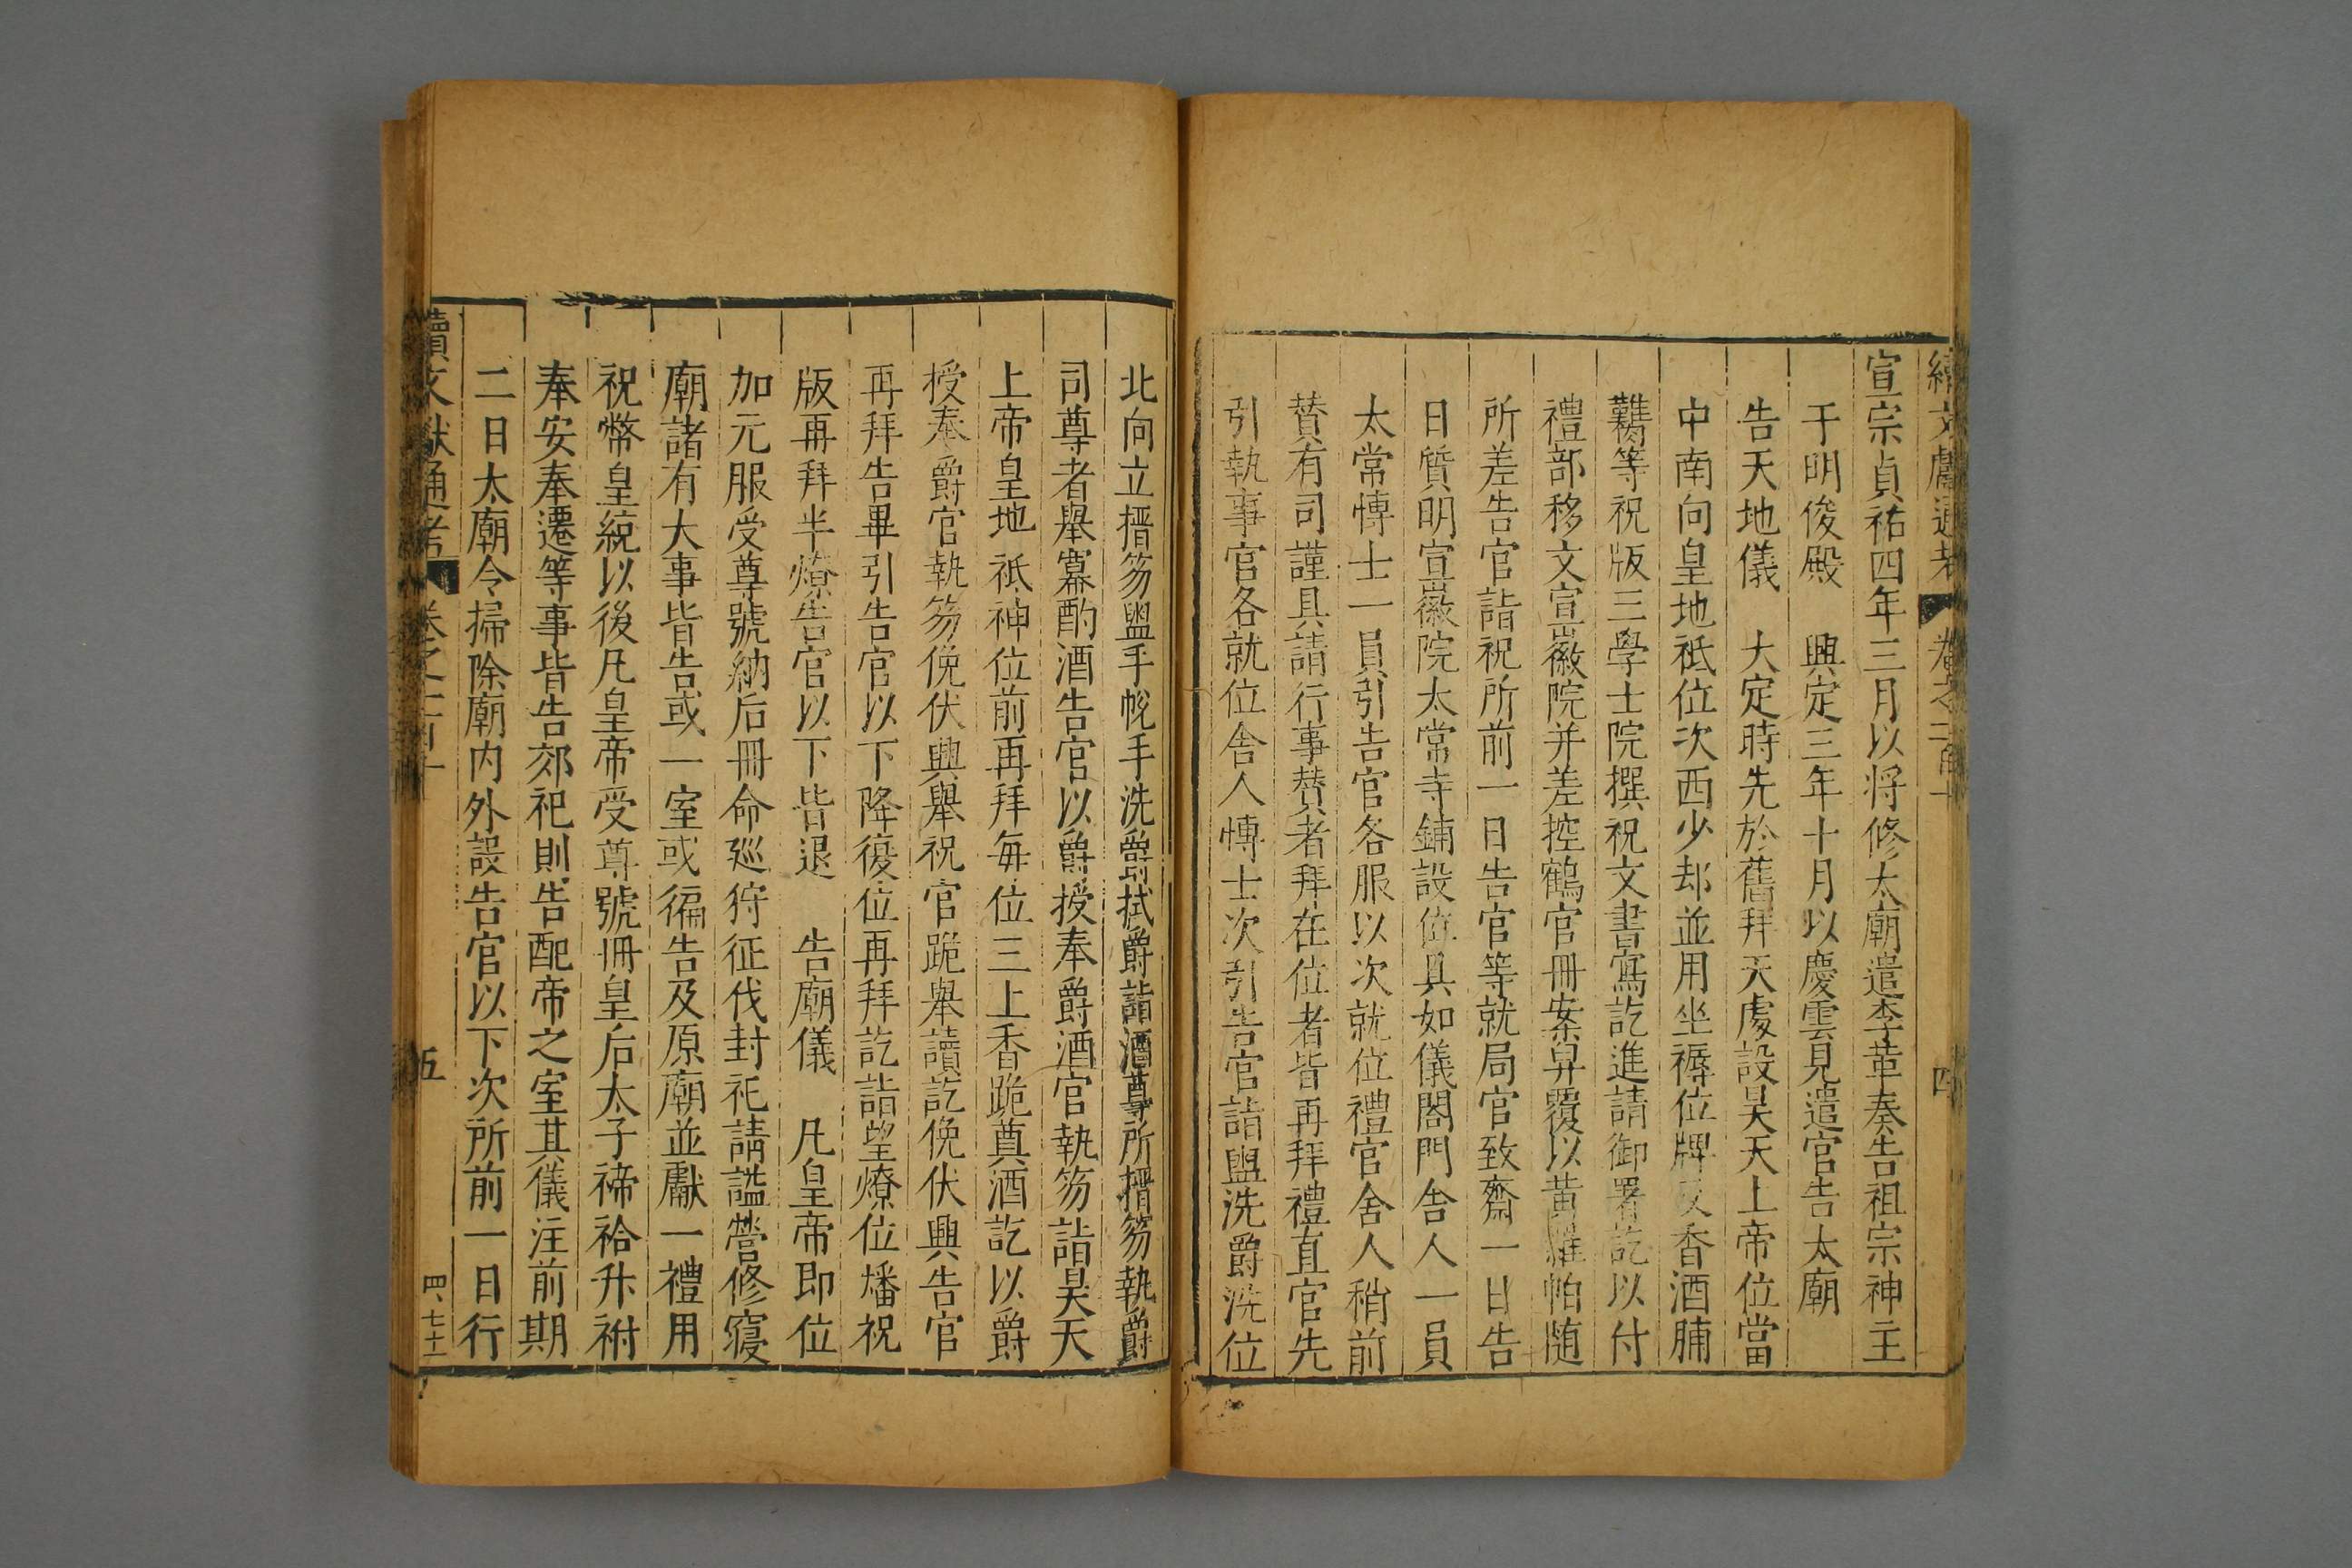 續文獻通考 卷之二百十 四
宣宗貞祐四年三月以將修太廟遣李革奏告祖宗神主
于明俊殿 興定三年十月以慶雲見遣官告太廟
告天地儀 大定時先於舊拜天處設昊天上帝位當
中南向皇地祇位次西少却並用坐褥位牌及香酒脯
醢等祝版三學士院撰祝文書寫訖進請御署訖以付
禮部移文宣徽院并差控鶴官冊案舁覆以黃羅帕随
所差告官詣祝所前一日告官等就局官致齋一日告
日質明宣徽院太常寺鋪設位具如儀閤門舍人一員
太常博士一員引告官各服以次就位禮官舍人稍前
贊有司謹具請行事贊者拜在位者皆再拜禮直官先
引執事官各就位舍人博士次引告官詣盥洗爵洗位
北向立搢笏盥手帨手洗爵拭爵詣酒尊所搢笏執爵
司尊者舉羃酌酒告官以爵授奉爵酒官執笏詣昊天
上帝皇地祇神位前再拜每位三上香跪奠酒訖以爵
授奉爵官執笏俛伏興舉祝官跪舉讀訖俛伏興告官
再拜告畢引告官以下降復位再拜訖詣望燎位燔祝
版再拜半燎告官以下皆退 告廟儀 凡皇帝即位
加元服受尊號納后冊命廵狩征伐封祀請謚營修寢
廟諸有大事皆告或一室或徧告及原廟並獻一禮用
祝幣皇統以後凡皇帝受尊號冊皇后太子禘祫升祔
奉安奉遷等事皆告郊祀則告配帝之室其儀注前期
二日太廟令掃除廟内外設告官以下次所前一日行
續文獻通考 卷之二百十 五 四七十